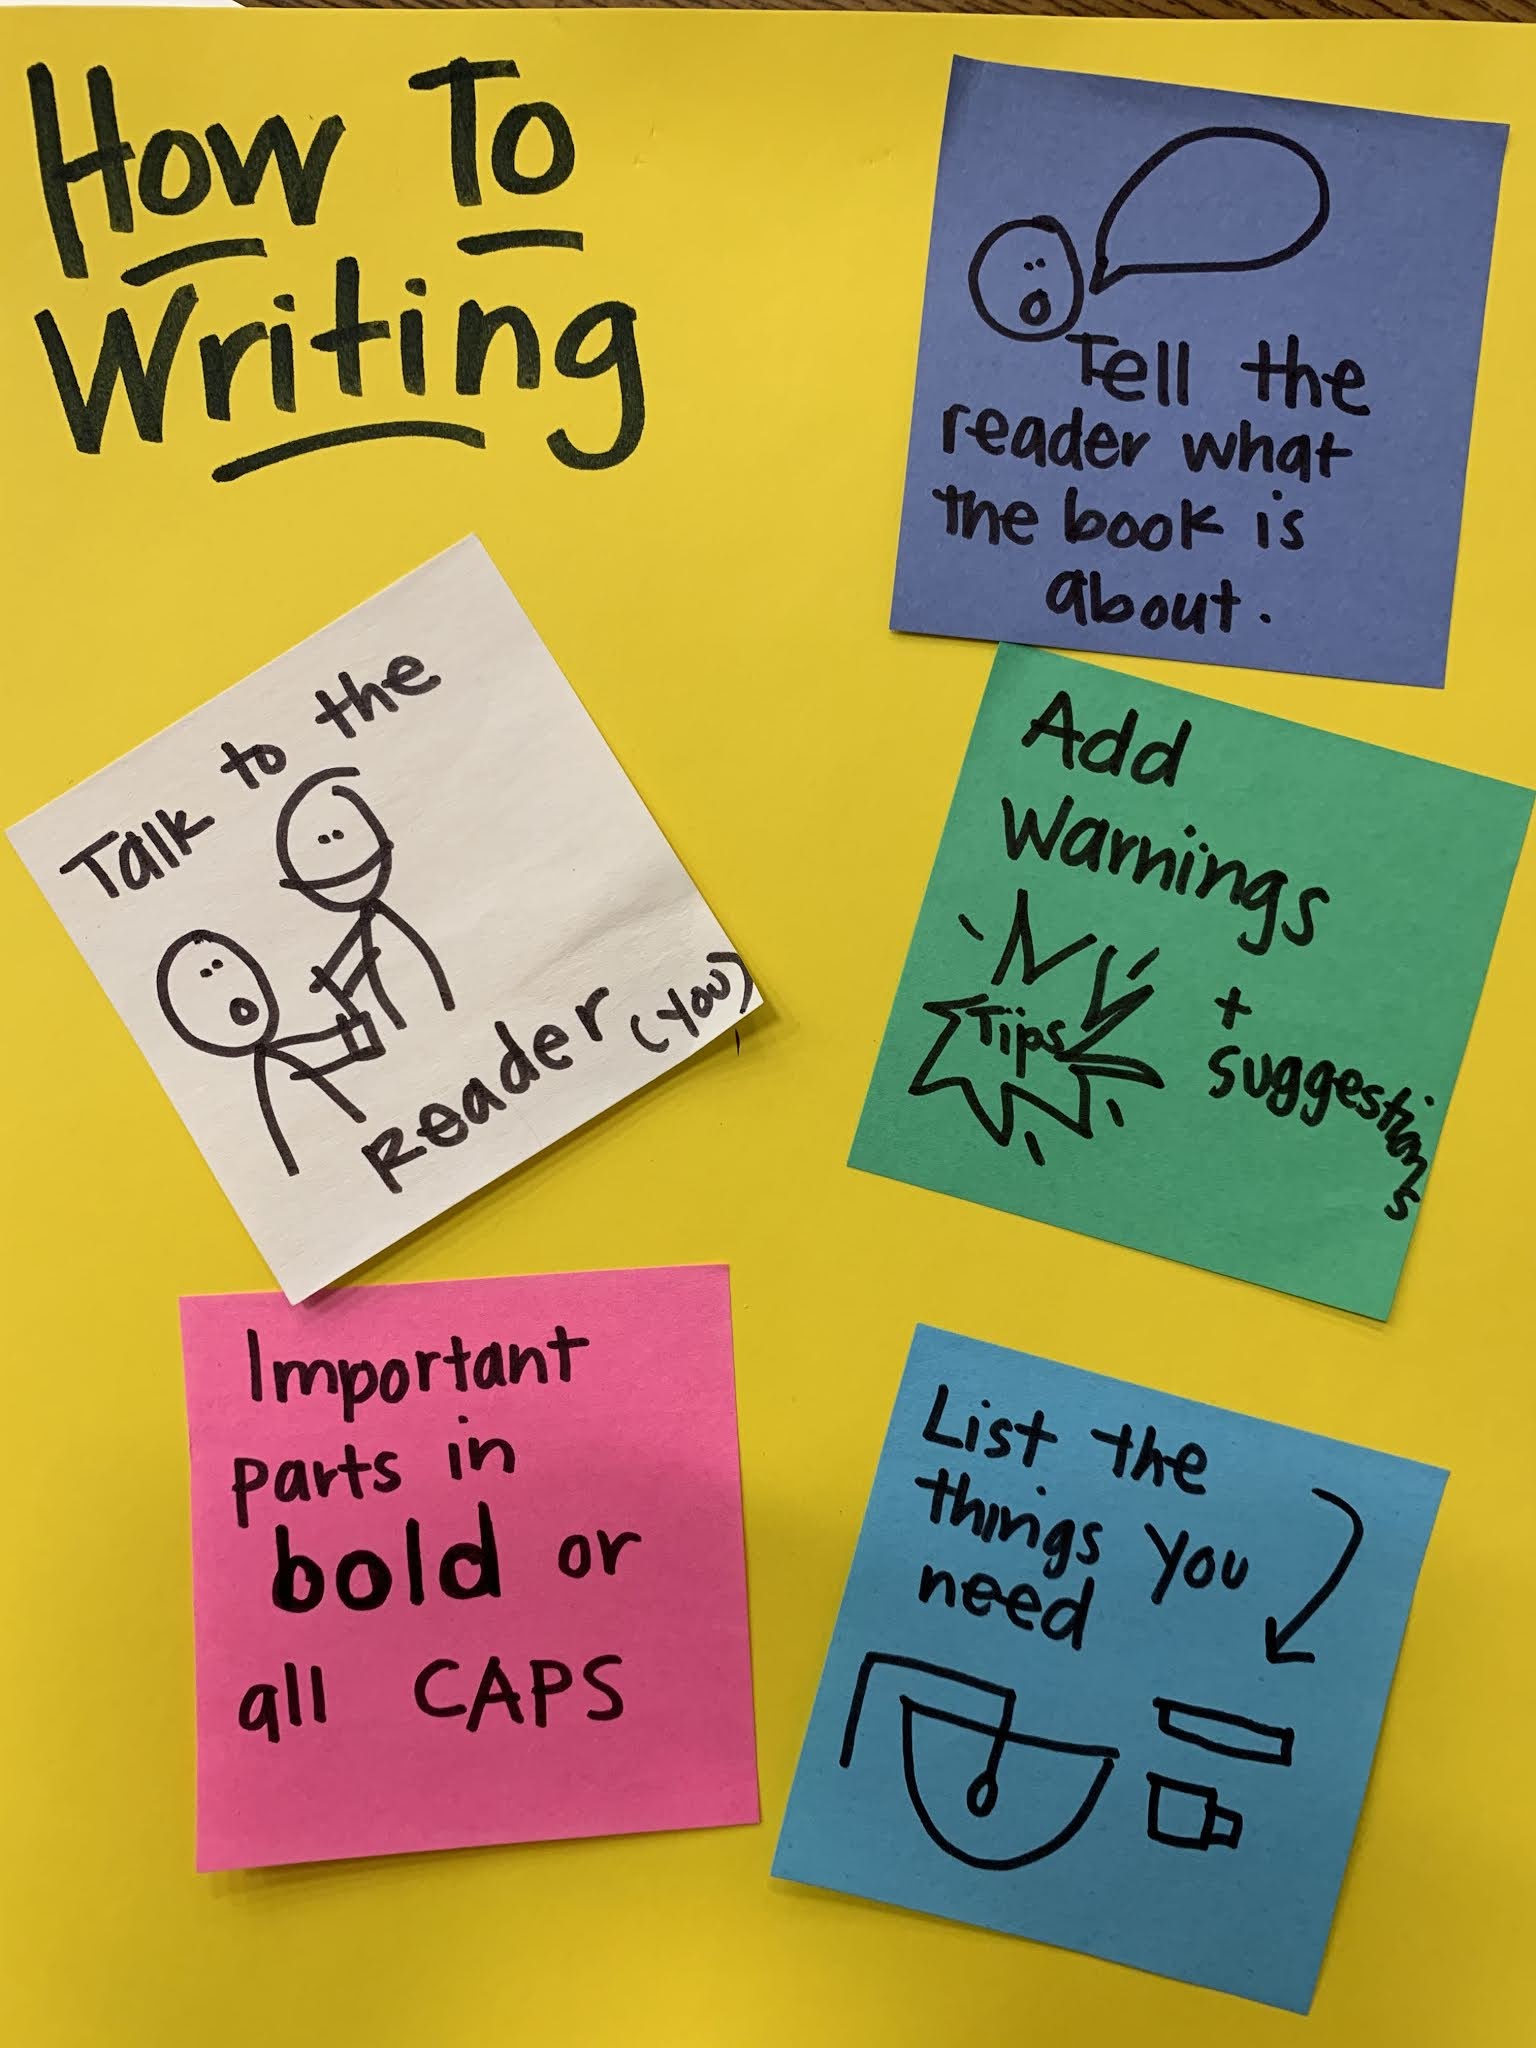 How To
Writing
Tell the
reader what
the book is
about.
Talk to the
Reader (you)
Add
Warnings
+
Tips
suggestions
Important
parts in
bold or
all CAPS
List the
things you
need